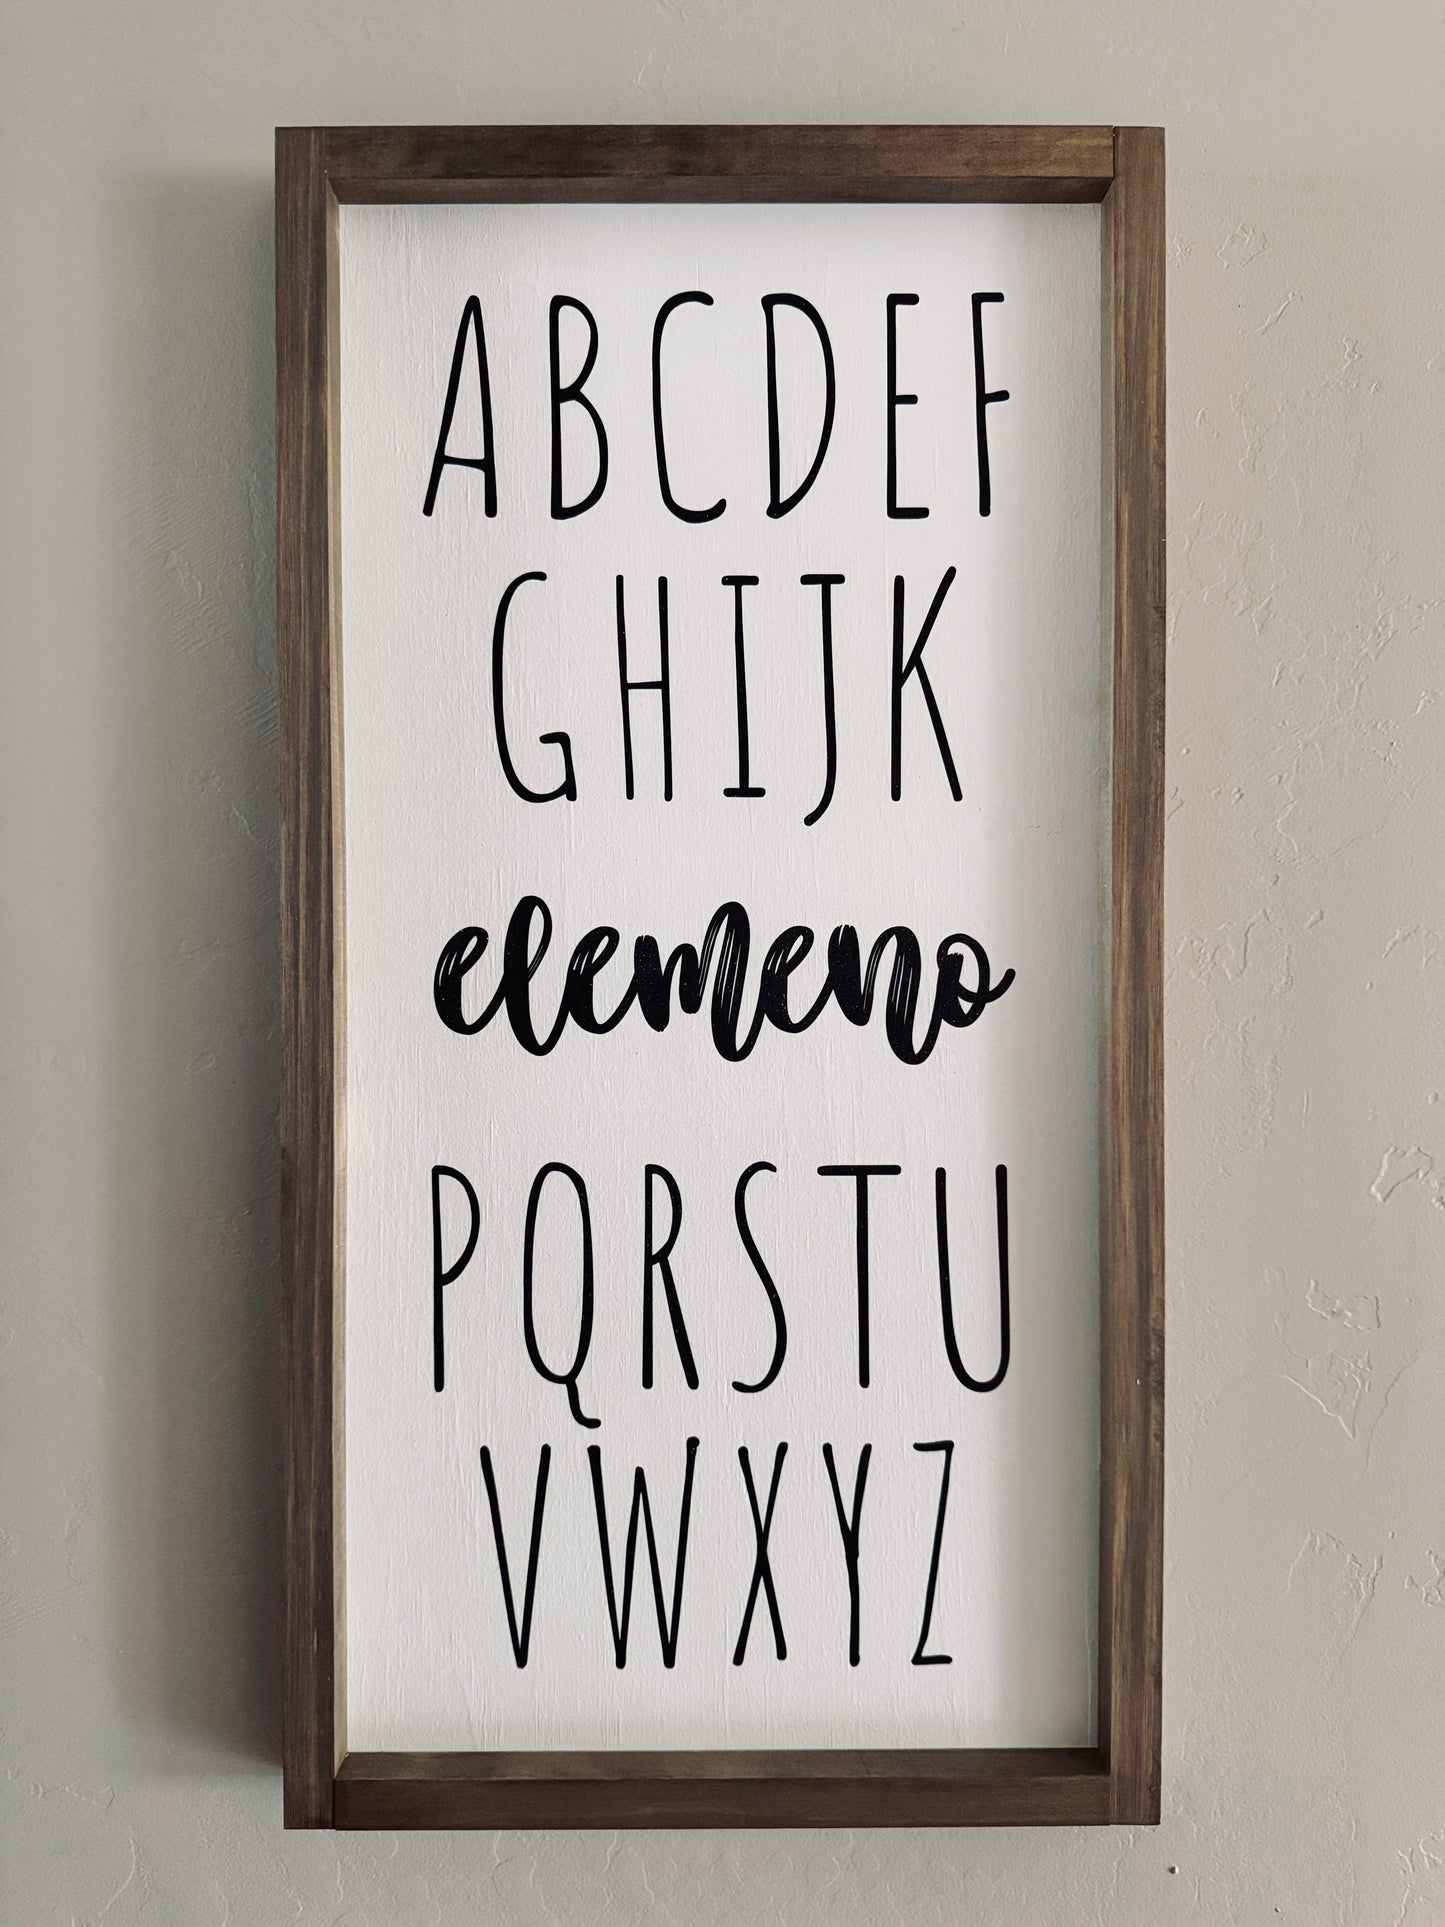 ABCDEF
GHIJK
elemeno
PQRSTU
VWXYZ